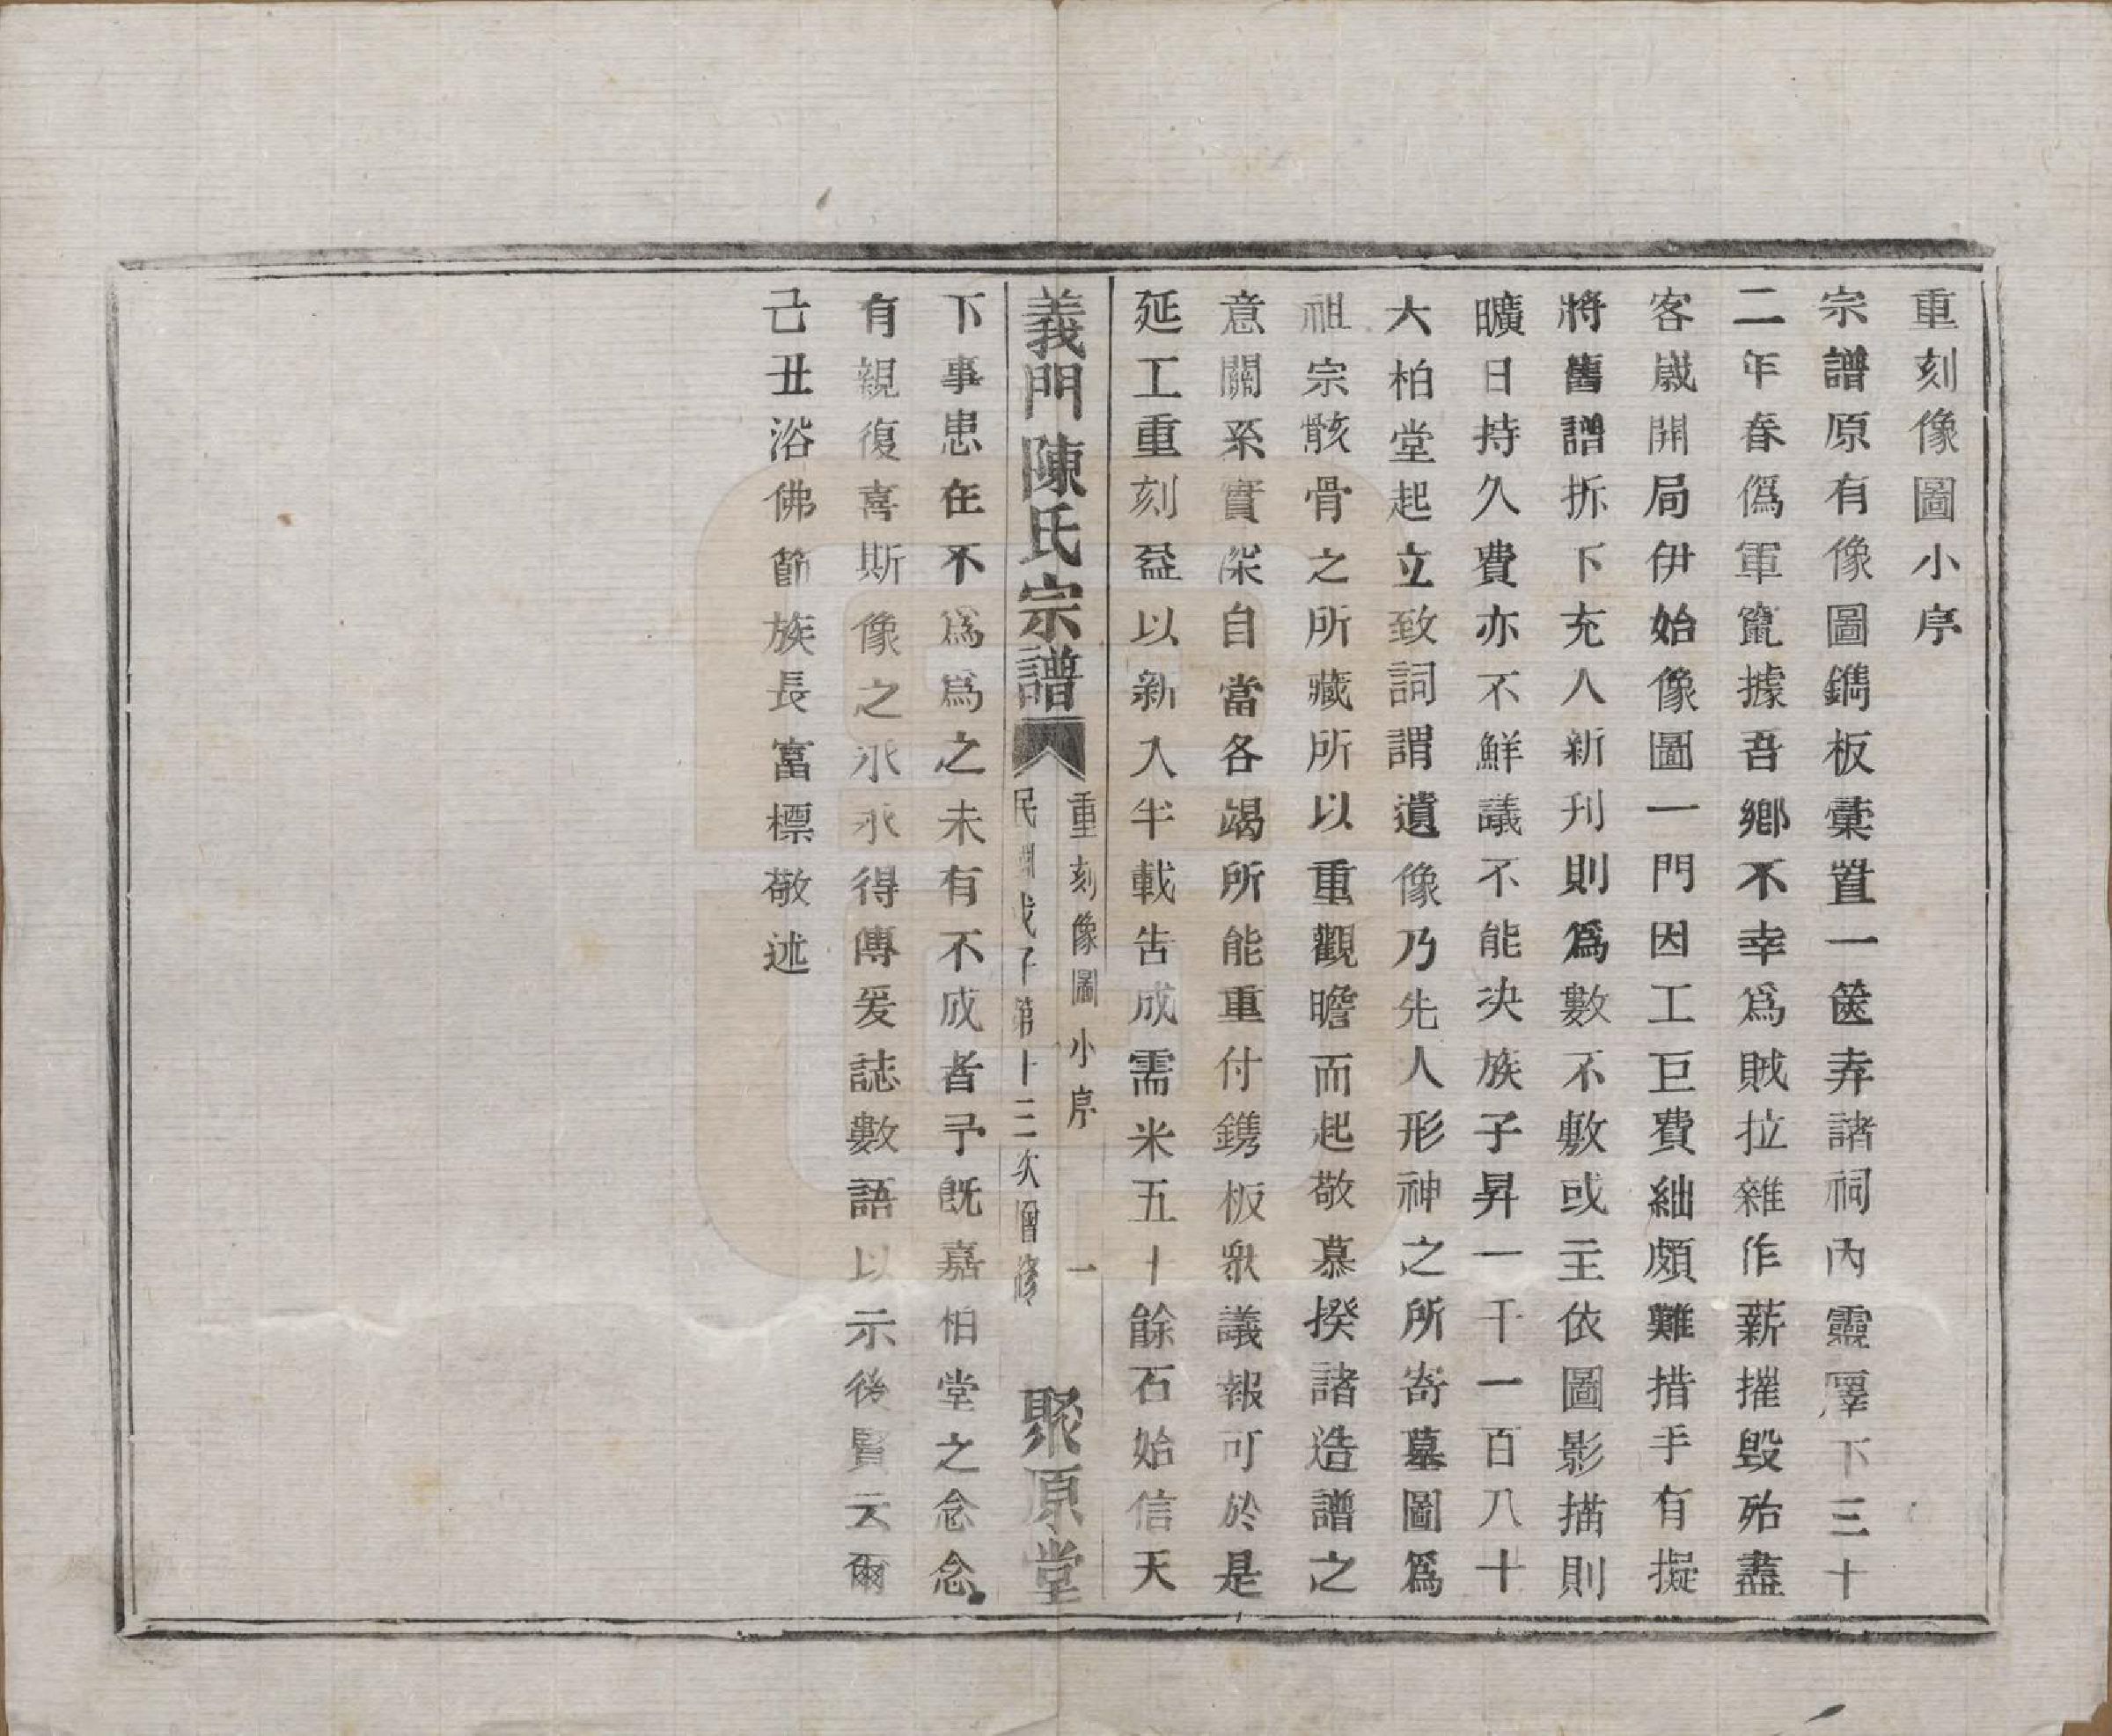 重刻像圖小序
宗譜原有像圖鐫板彙置一篋弆諸祠內靈澤下三十
二年春僞軍竄據吾鄉不幸爲賊拉雜作薪摧毁殆盡
客歲開局伊始像圖一門因工巨費絀頗難措手有擬
將舊譜拆下充人新刊則爲數不敷或主依圖影描則
曠日持久費亦不鮮議不能決族子昇一千一百八十
大柏堂起立致詞謂遺像乃先人形神之所寄墓圖爲
祖宗骸骨之所藏所以重觀瞻而起敬慕揆諸造譜之
意關系實深自當各竭所能重付鐫板衆議報可於是
延工重刻益以新入半載告成需米五十餘石始信天
義門陳氏宗譜
重刻像圖小序 一
民國戊子第十三次增修
聚原堂
下事患在不爲爲之未有不成者予既嘉柏堂之念念
有親復喜斯像之永永得傳爰誌數語以示後賢云爾
己丑浴佛節族長富標敬述